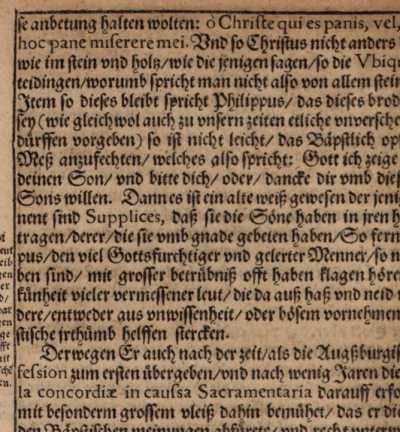 se anbetung halten wolten: ò Christe qui es panis, vel,
hoc pane miserere mei. Vnd so Christus nicht anders
wie im stein vnd holz/ wie die jenigen sagen/ so die Vbiq
teidingen/ worumb spricht man nicht also von allem stein
Item so dieses bleibt spricht Philippus/ das dieses brod
sey (wie gleichwol auch zu vnsern zeiten etliche vnversche
dürffen vorgeben) so ist nicht leicht/ das Bäpstlich op
Meß anzufechten/ welches also spricht: Gott ich zeige
deinen Son/ vnd bitte dich/ oder/ dancke dir vmb dieß
Sons willen. Dann es ist ein alte weiß gewesen der jenig
nent sind Supplices, daß sie die Söne haben in jren h
tragen/ derer/ die sie vmb gnade gebeten haben/ So fern
pus/ den viel Gottsfurchtiger vnd gelerter Menner/ so n
ben sind/ mit grosser betrübniß offt haben klagen hören
künheit vieler vermessener leut/ die da auß haß vnd neid w
dere/ entweder aus vnwissenheit/ oder bösem vornehmen
stische jrthümb helffen stercken.
Derwegen Er auch nach der zeit/ als die Augßburgis
fession zum ersten übergeben/ vnd nach wenig Jaren die
la concordiæ in caussa Sacramentaria darauff erfo
mit besonderm grossem vleiß dahin bemühet/ das er die
den Bäpstischen meinungen abfürete/ vnd recht vnterm